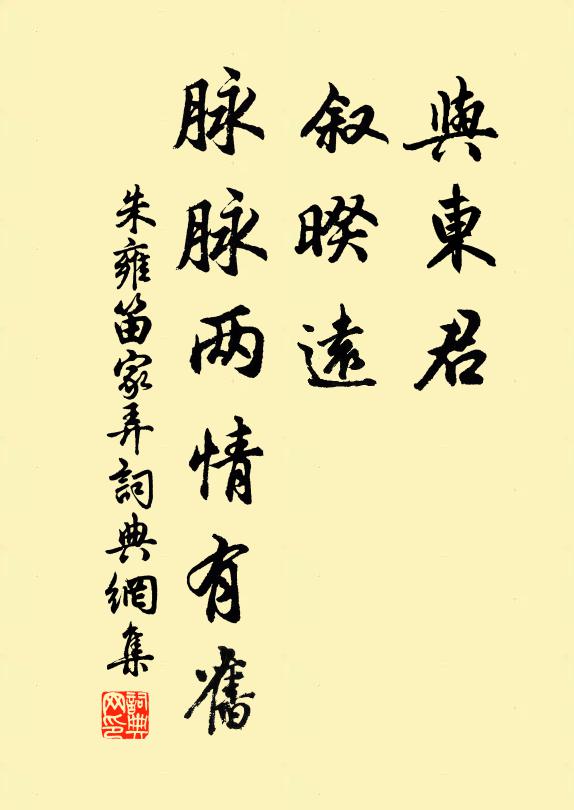 與東君
叙暌遠
脉脉两情有舊
朱雍笛家弄詞典網集
詞典網印